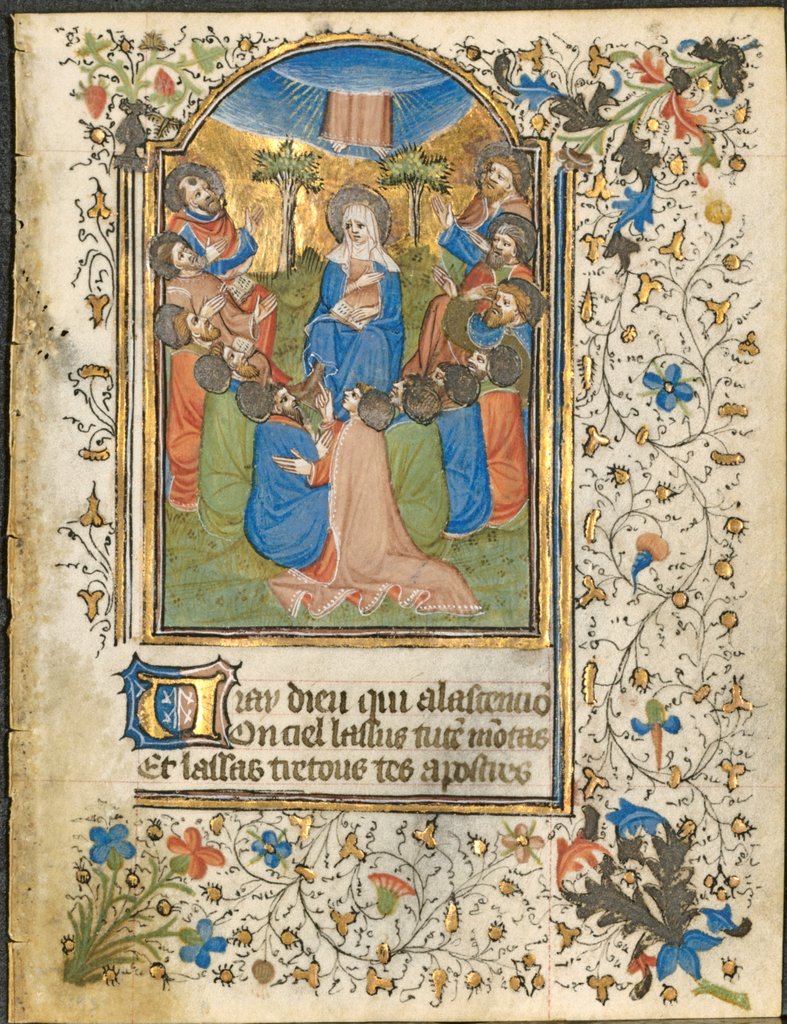 Vray dieu qui alascenciō
On ciel lassus tutē mōtas
Et lassas tretous tes apostres